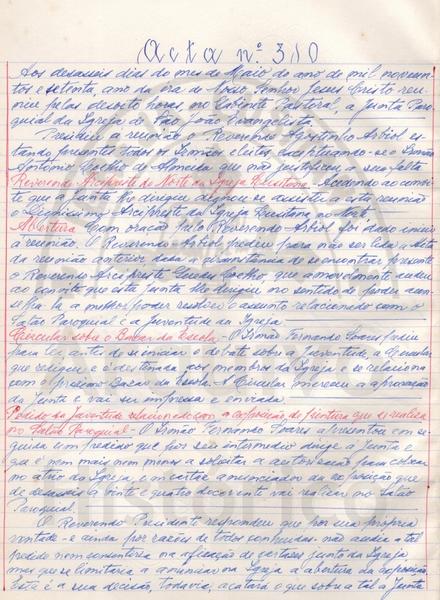 Acta nº. 310
Aos dezasseis dias do mes de Maio do ano de mil novecen-
tos e setenta, ano da era de Nosso Senhor Jesus Cristo reu-
niu pelas dezoito horas, no Gabinete Pastoral, a Junta Paro-
quial da Igreja de São João Evangelista.
Presidiu a reunião o Reverendo Agostinho Arbiol es-
tando presentes todos os Irmãos eleitos exceptuando-se o Irmão
António Coelho de Almeida que não justificou a sua falta
Reverendo Arcipreste do Norte da Igreja Lusitana - Acedendo ao convi-
te que a Junta lhe dirigiu dignou-se assistir a esta reunião
o Arcipreste da Igreja Lusitana no Norte
Abertura Com oração pelo Reverendo Arbiol foi dado início
à reunião. O Reverendo Arbiol pediu para não ser lida a Acta
da reunião anterior dada a circunstância de se encontrar presente
o Reverendo Arcipreste Coelho que amavelmente acedeu
ao convite que esta Junta lhe dirigiu no sentido de poder acon-
selhá-la a melhor poder resolver o assunto relacionado com o
Salão Paroquial e a Juventude da Igreja.
Circular sobre o Bazar da Escola - O Irmão Fernando Soares pediu
para ler, antes de se iniciar o debate sobre a Juventude, a Circular
que redigiu e é destinada aos membros da Igreja e se relaciona
com o próximo Bazar da Escola. A Circular mereceu a aprovação
da Junta e vai ser impressa e enviada.
Pedido da Juventude relacionado com a exposição de pintura que se realiza
no Salão Paroquial - O Irmão Fernando Soares apresentou em se-
guida um pedido que por seu intermedio dirige a Junta e
que é nem mais nem menos a solicitar a autorização para colocar
no atrio da Igreja, um cartaz anunciador da exposição que
de dezasseis a vinte e quatro decorrente vai realizar no Salão
Paroquial.
O Reverendo Presidente respondeu que por sua propria
vontade - e ainda por razões de todos conhecidas - não acedia a tal
pedido nem consentiria na afixação de cartazes junto da Igreja
mas que se limitaria a anunciar na Igreja a abertura da exposição.
Esta é a sua decisão, todavia, acatará o que sobre a tal a Junta